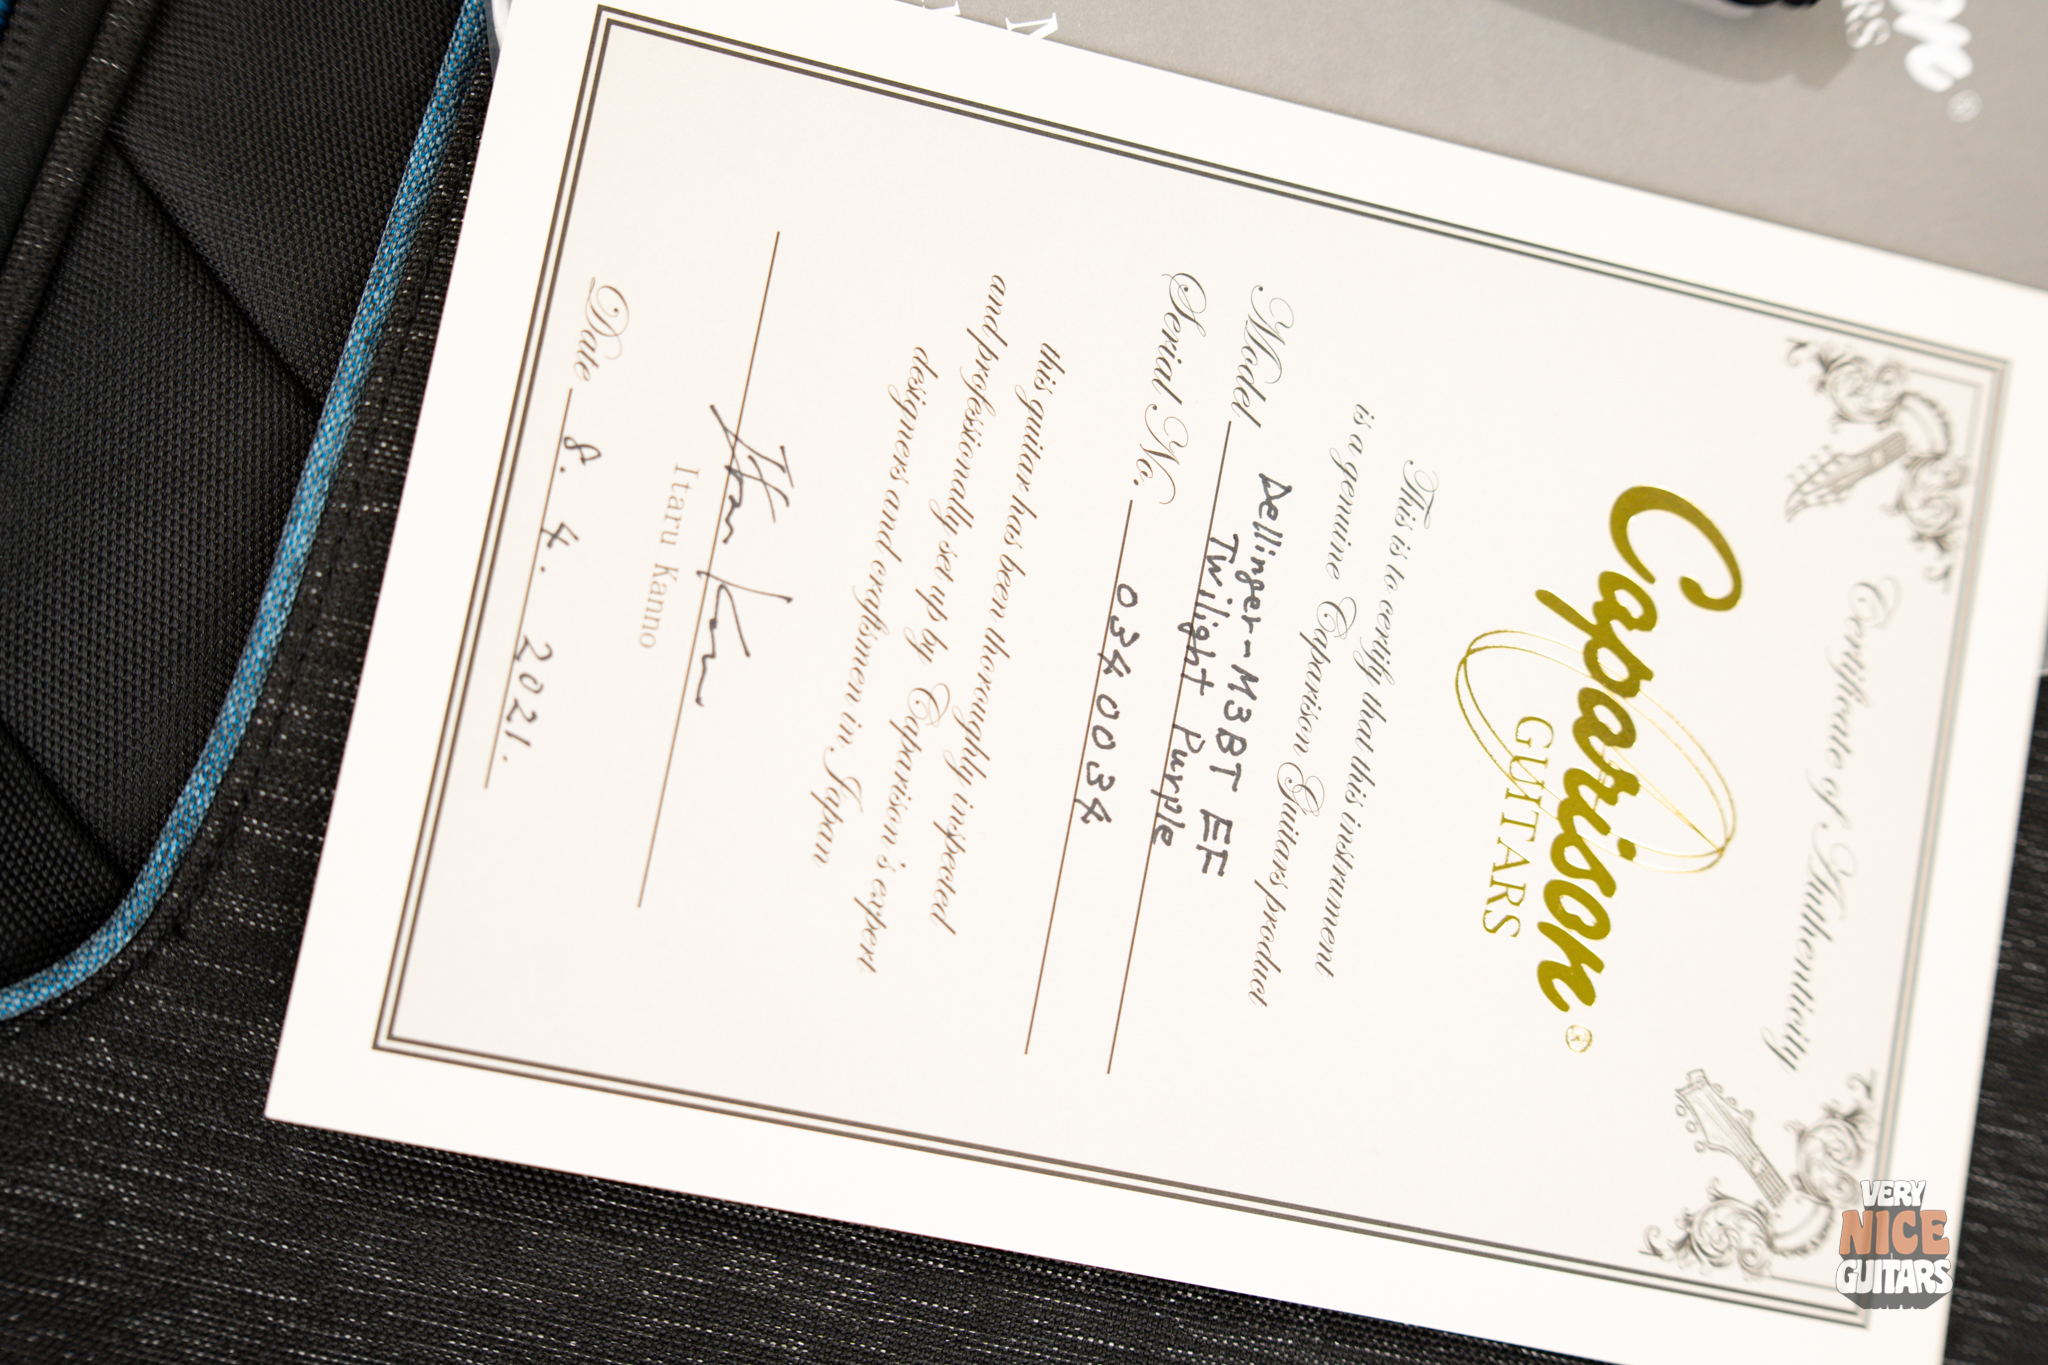 Certificate of Authenticity
Caparison®
GUITARS
This is to certify that this instrument
is a genuine Caparison Guitars product
Model Dellinger-M3BT EF
Twilight Purple
Serial No. 0340034
this guitar has been thoroughly inspected
and professionally set up by Caparison's expert
designers and craftsmen in Japan
Itaru Kanno
Itaru Kanno
Date 8. 4. 2021.
VERY
NICE
GUITARS